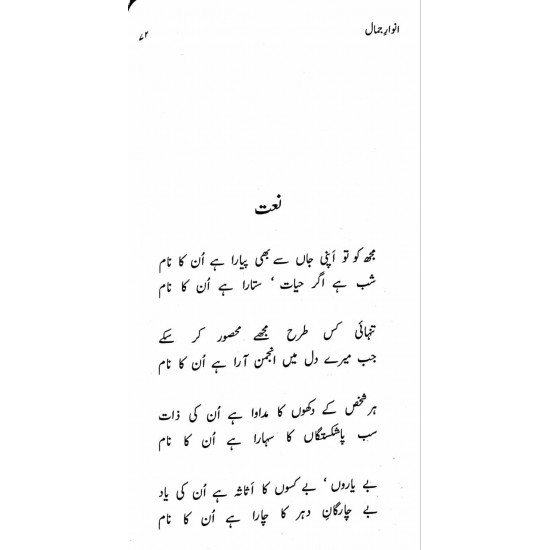 انوارِ جمال
۷۲
نعت
مجھ کو تو اَپنی جاں سے بھی پیارا ہے اُن کا نام
شب ہے اگر حیات ‘ ستارا ہے اُن کا نام
تنہائی کس طرح مجھے محصور کر سکے
جب میرے دل میں انجمن آرا ہے اُن کا نام
ہر شخص کے دکھوں کا مداوا ہے اُن کی ذات
سب پاشکستگاں کا سہارا ہے اُن کا نام
بے یاروں ‘ بے کسوں کا اَثاثہ ہے اُن کی یاد
بے چارگانِ دہر کا چارا ہے اُن کا نام